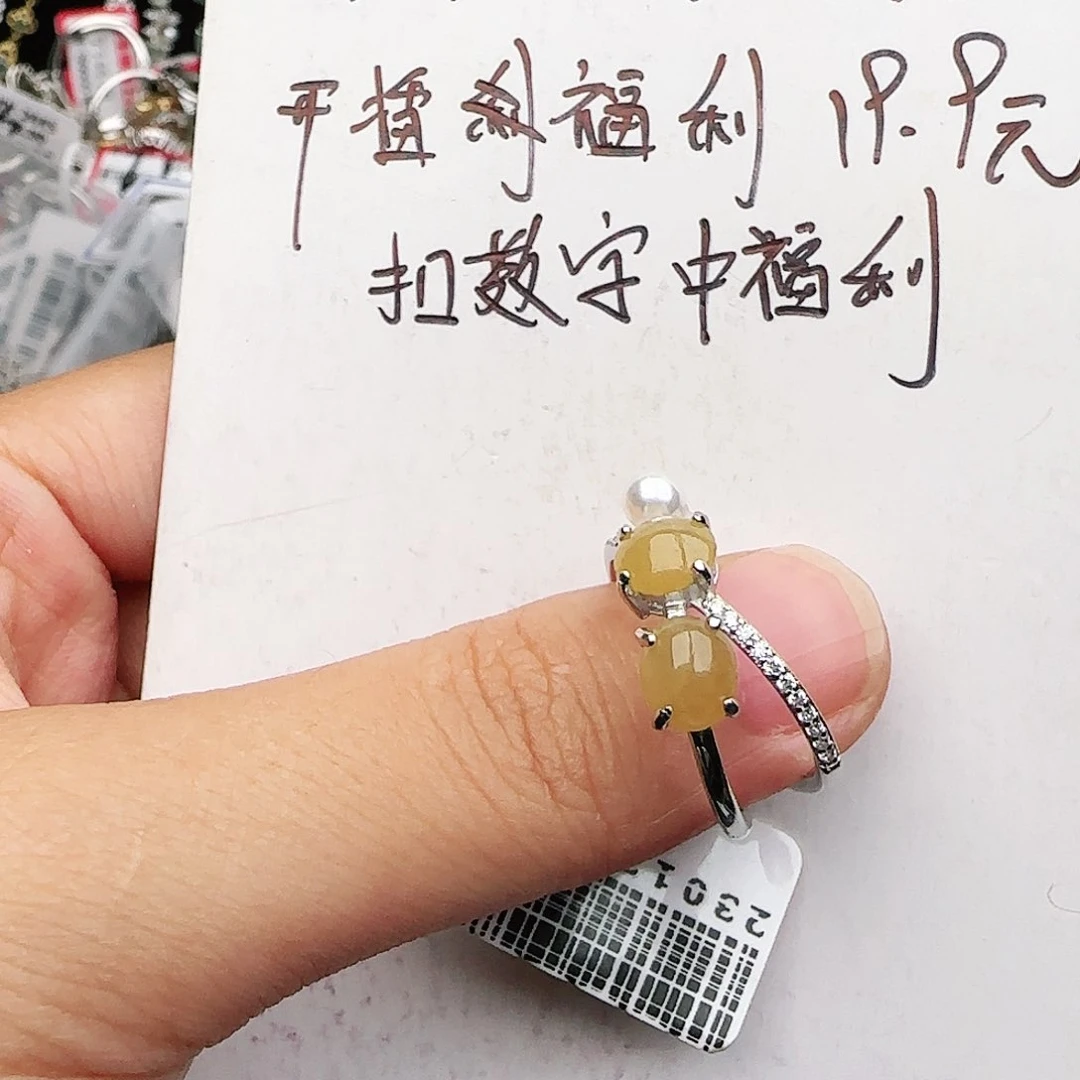 开播福利 19.9元
扣数字中福利
2301